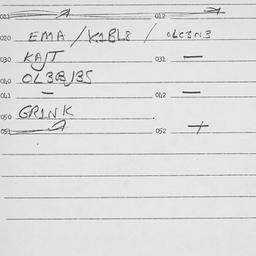 011 012
020 EMA / K1BL8 / OLC3N3
030 KAJT 031 —
040 OL3BJ35
041 — 042 —
050 GR1NK
051 052 +